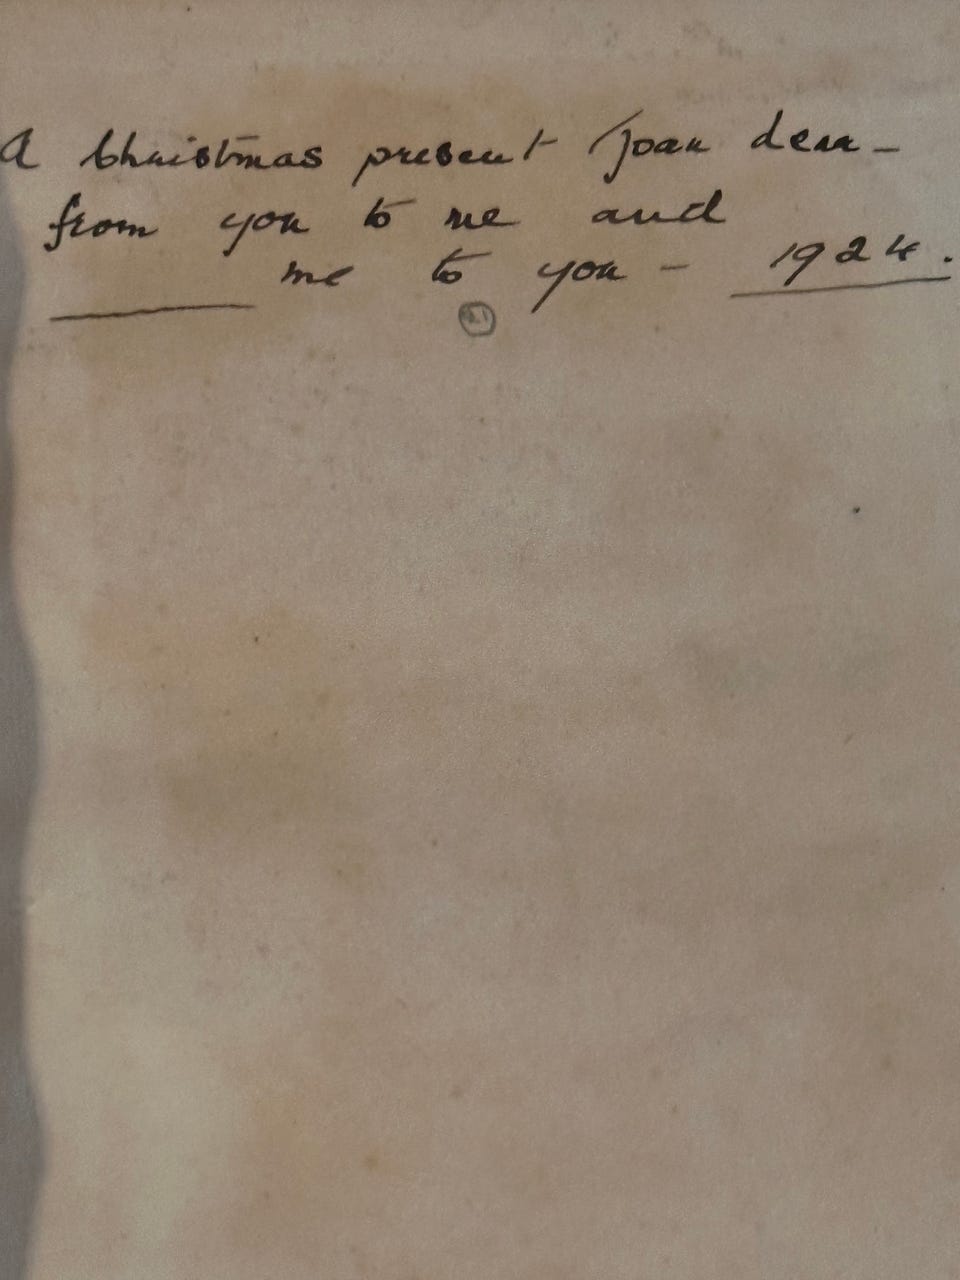 A Christmas present Joan dear –
from you to me and
me to you – 1924.